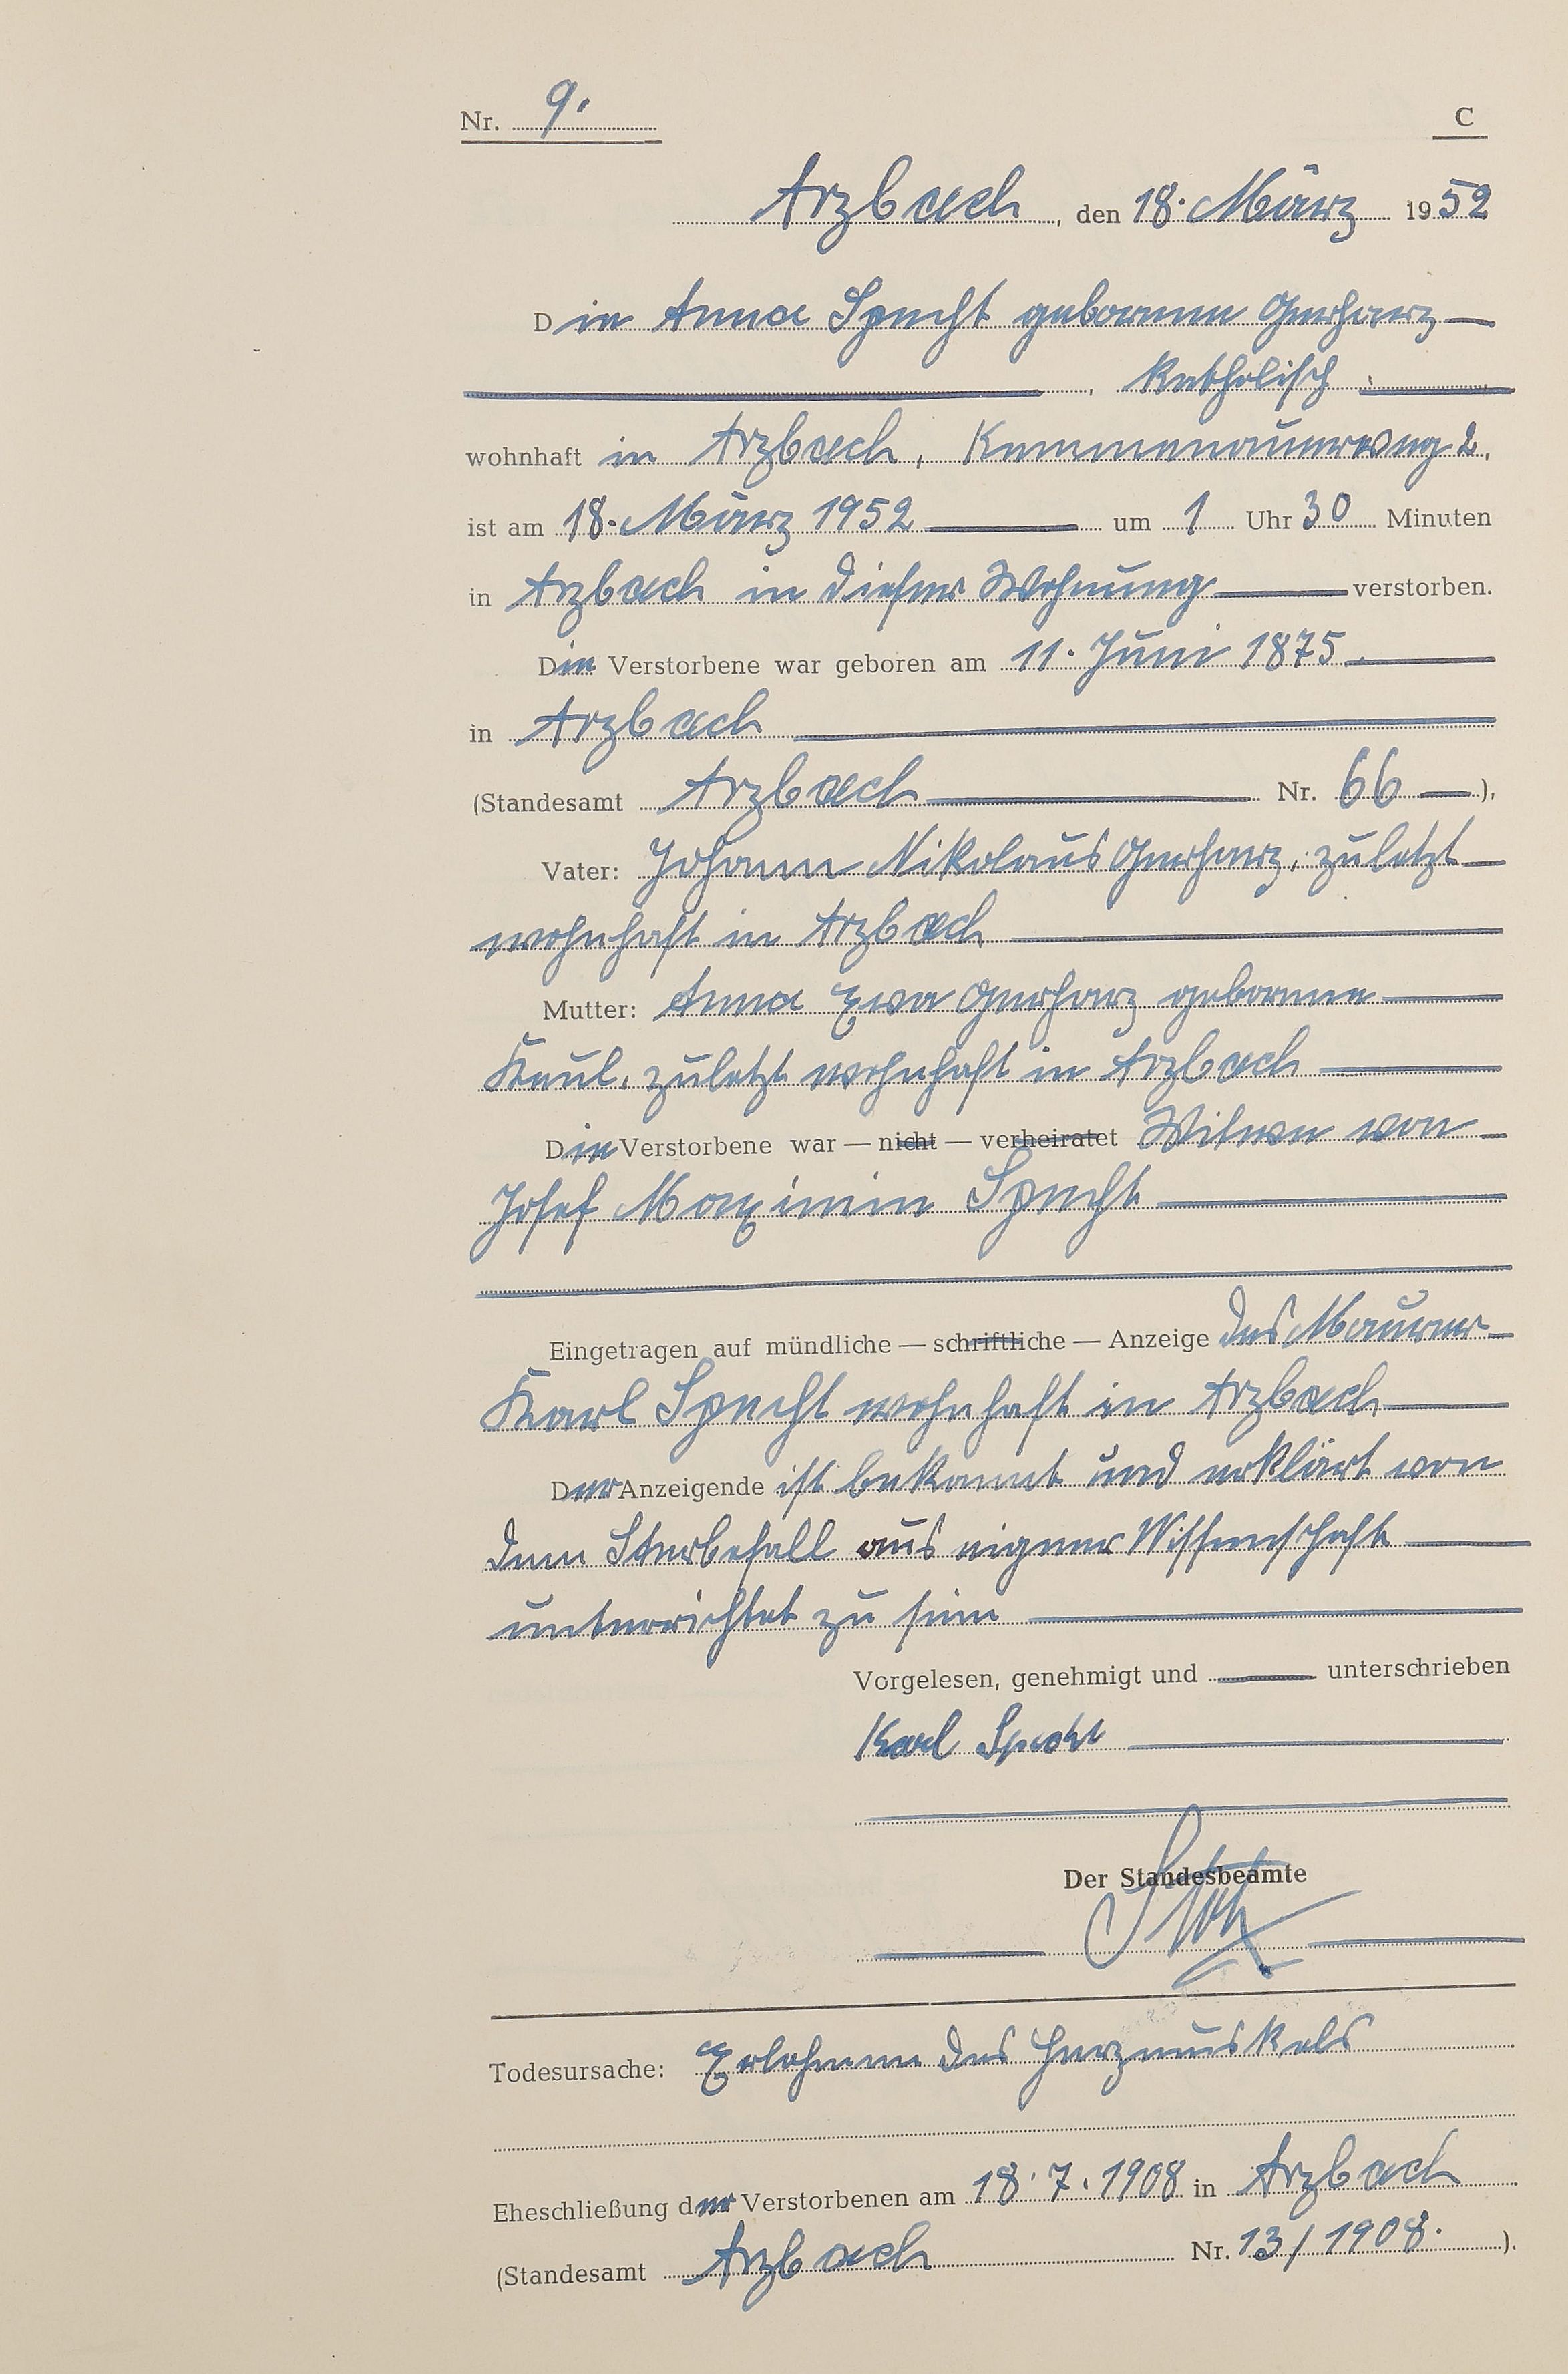 Nr. 9.
C
Arzbach, den 18. März 1952
Die Anna Specht geborene Gerharz
, katholisch
wohnhaft in Arzbach, Kemmenauerweg 2,
ist am 18. März 1952 um 1 Uhr 30 Minuten
in Arzbach in dieser Wohnung verstorben.
Die Verstorbene war geboren am 11. Juni 1875
in Arzbach
(Standesamt Arzbach Nr. 66 ),
Vater: Johann Nikolaus Gerharz, zuletzt
wohnhaft in Arzbach
Mutter: Anna Eva Gerharz geborene
Keul, zuletzt wohnhaft in Arzbach
Die Verstorbene war — nicht — verheiratet Witwe von
Josef Maximin Specht
Eingetragen auf mündliche — schriftliche — Anzeige des Maurer
Karl Specht wohnhaft in Arzbach
Der Anzeigende ist bekannt und erklärt von
dem Sterbefall aus eigener Wissenschaft
unterrichtet zu sein
Vorgelesen, genehmigt und unterschrieben
Karl Specht
Der Standesbeamte
Todesursache: Erlahmen des Herzmuskels
Eheschließung der Verstorbenen am 18.7.1908 in Arzbach
(Standesamt Arzbach Nr. 13/1908. ).